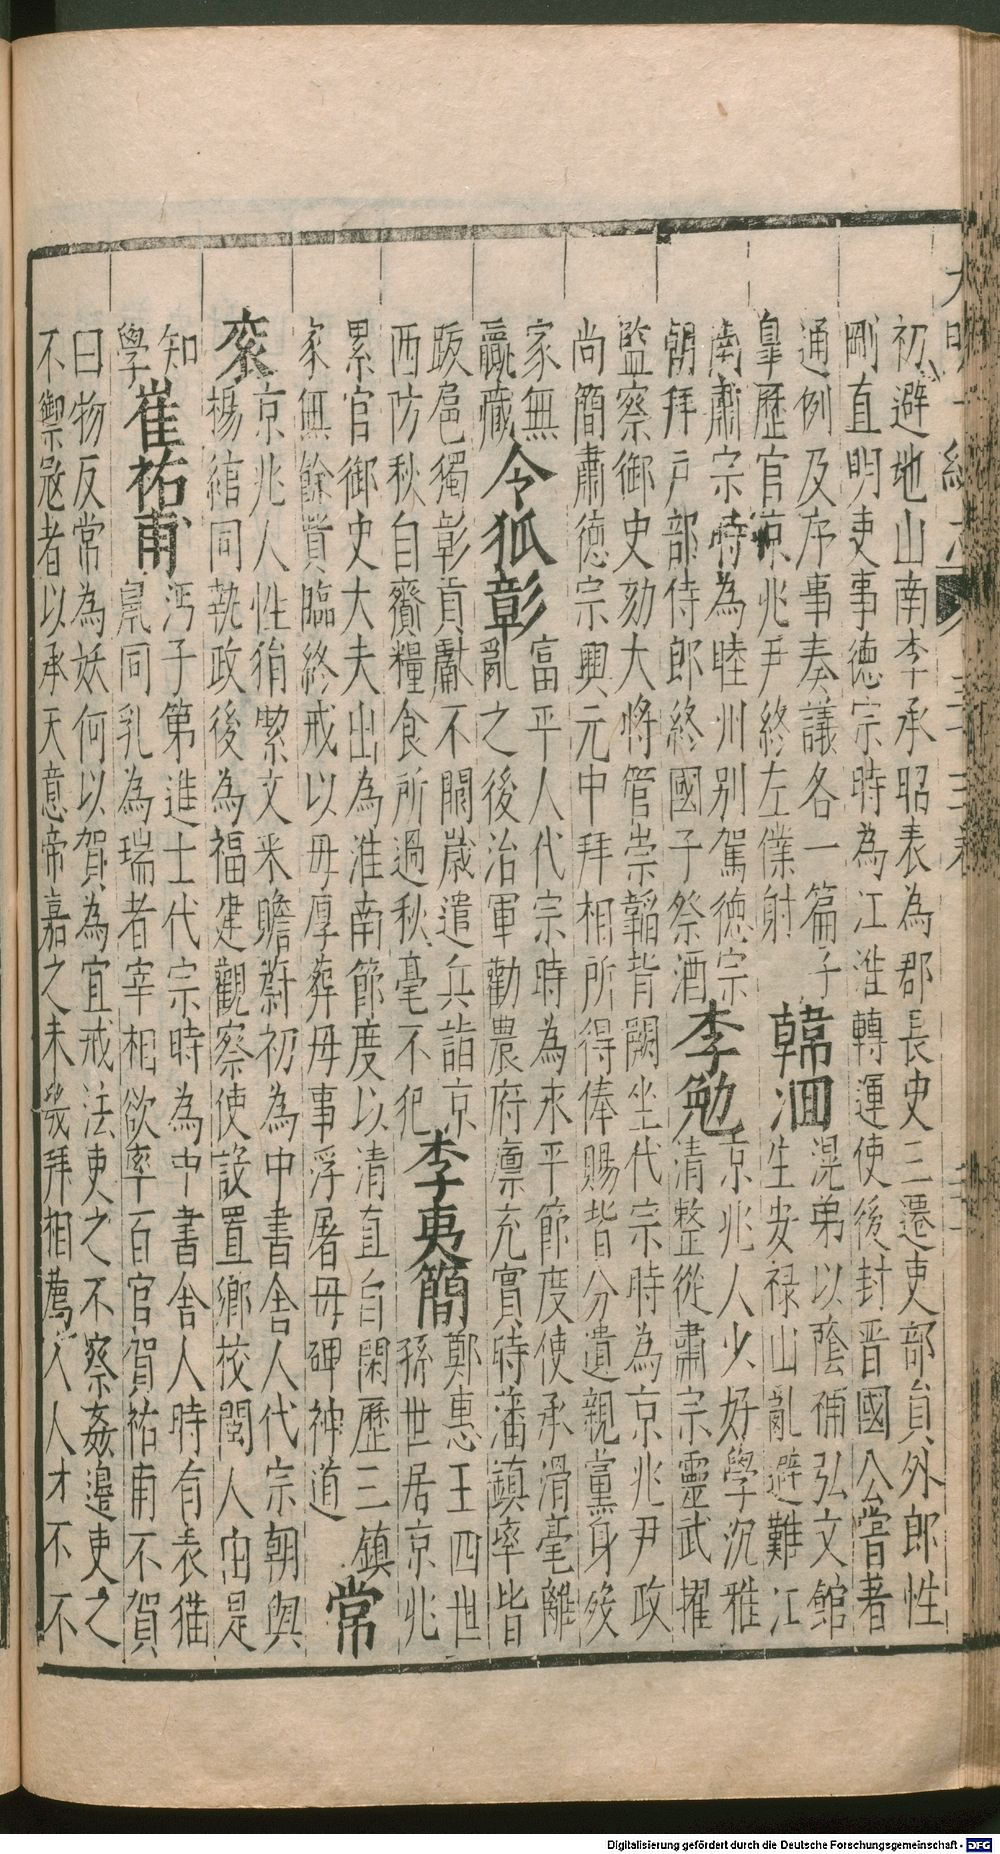 初避地山南李承昭表為郡長史三遷吏部員外郎性
剛直明吏事德宗時為江淮轉運使後封晋國公嘗著
通例及序事奏議各一篇子
韓洄
滉弟以蔭補弘文館
生安祿山亂避難江
皐歷官京兆尹終左僕射
南肅宗時為睦州別駕德宗
朝拜户部侍郎終國子祭酒
李勉
京兆人少好學沉雅
清整從肅宗靈武擢
監察御史劾大將管崇韜背闕坐代宗時為京兆尹政
尚簡肅德宗興元中拜相所得俸賜皆分遺親黨身殁
家無
贏藏
令狐彰
富平人代宗時為永平節度使承滑亳離
亂之後治軍勸農府廪充實時藩鎮率皆
跋扈獨彰貢獻不闕歲遣兵詣京
西防秋自齎糧食所過秋毫不犯
李夷簡
鄭惠王四世
孫世居京兆
累官御史大夫出為淮南節度以清直自閑歷三鎮
家無餘貲臨終戒以毋厚葬毋事浮屠毋碑神道
常
衮
京兆人性狷絜文采贍蔚初為中書舍人代宗朝與
楊綰同執政後為福建觀察使設置鄉校閩人由是
知
學
崔祐甫
沔子第進士代宗時為中書舍人時有表猫
鼠同乳為瑞者宰相欲率百官賀祐甫不賀
曰物反常為妖何以賀為宜戒法吏之不察姦邊吏之
不禦寇者以承天意帝嘉之未幾拜相薦人人才不不
Digitalisierung gefördert durch die Deutsche Forschungsgemeinschaft - DFG